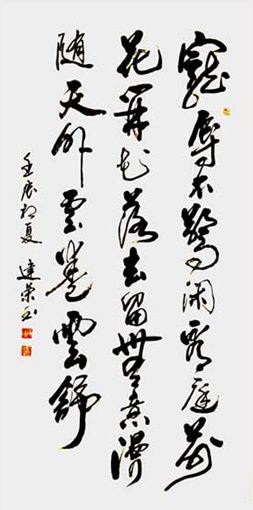 寵辱不驚閑看庭前
花開花落去留無意漫
隨天外雲卷雲舒
壬辰初夏 建榮書